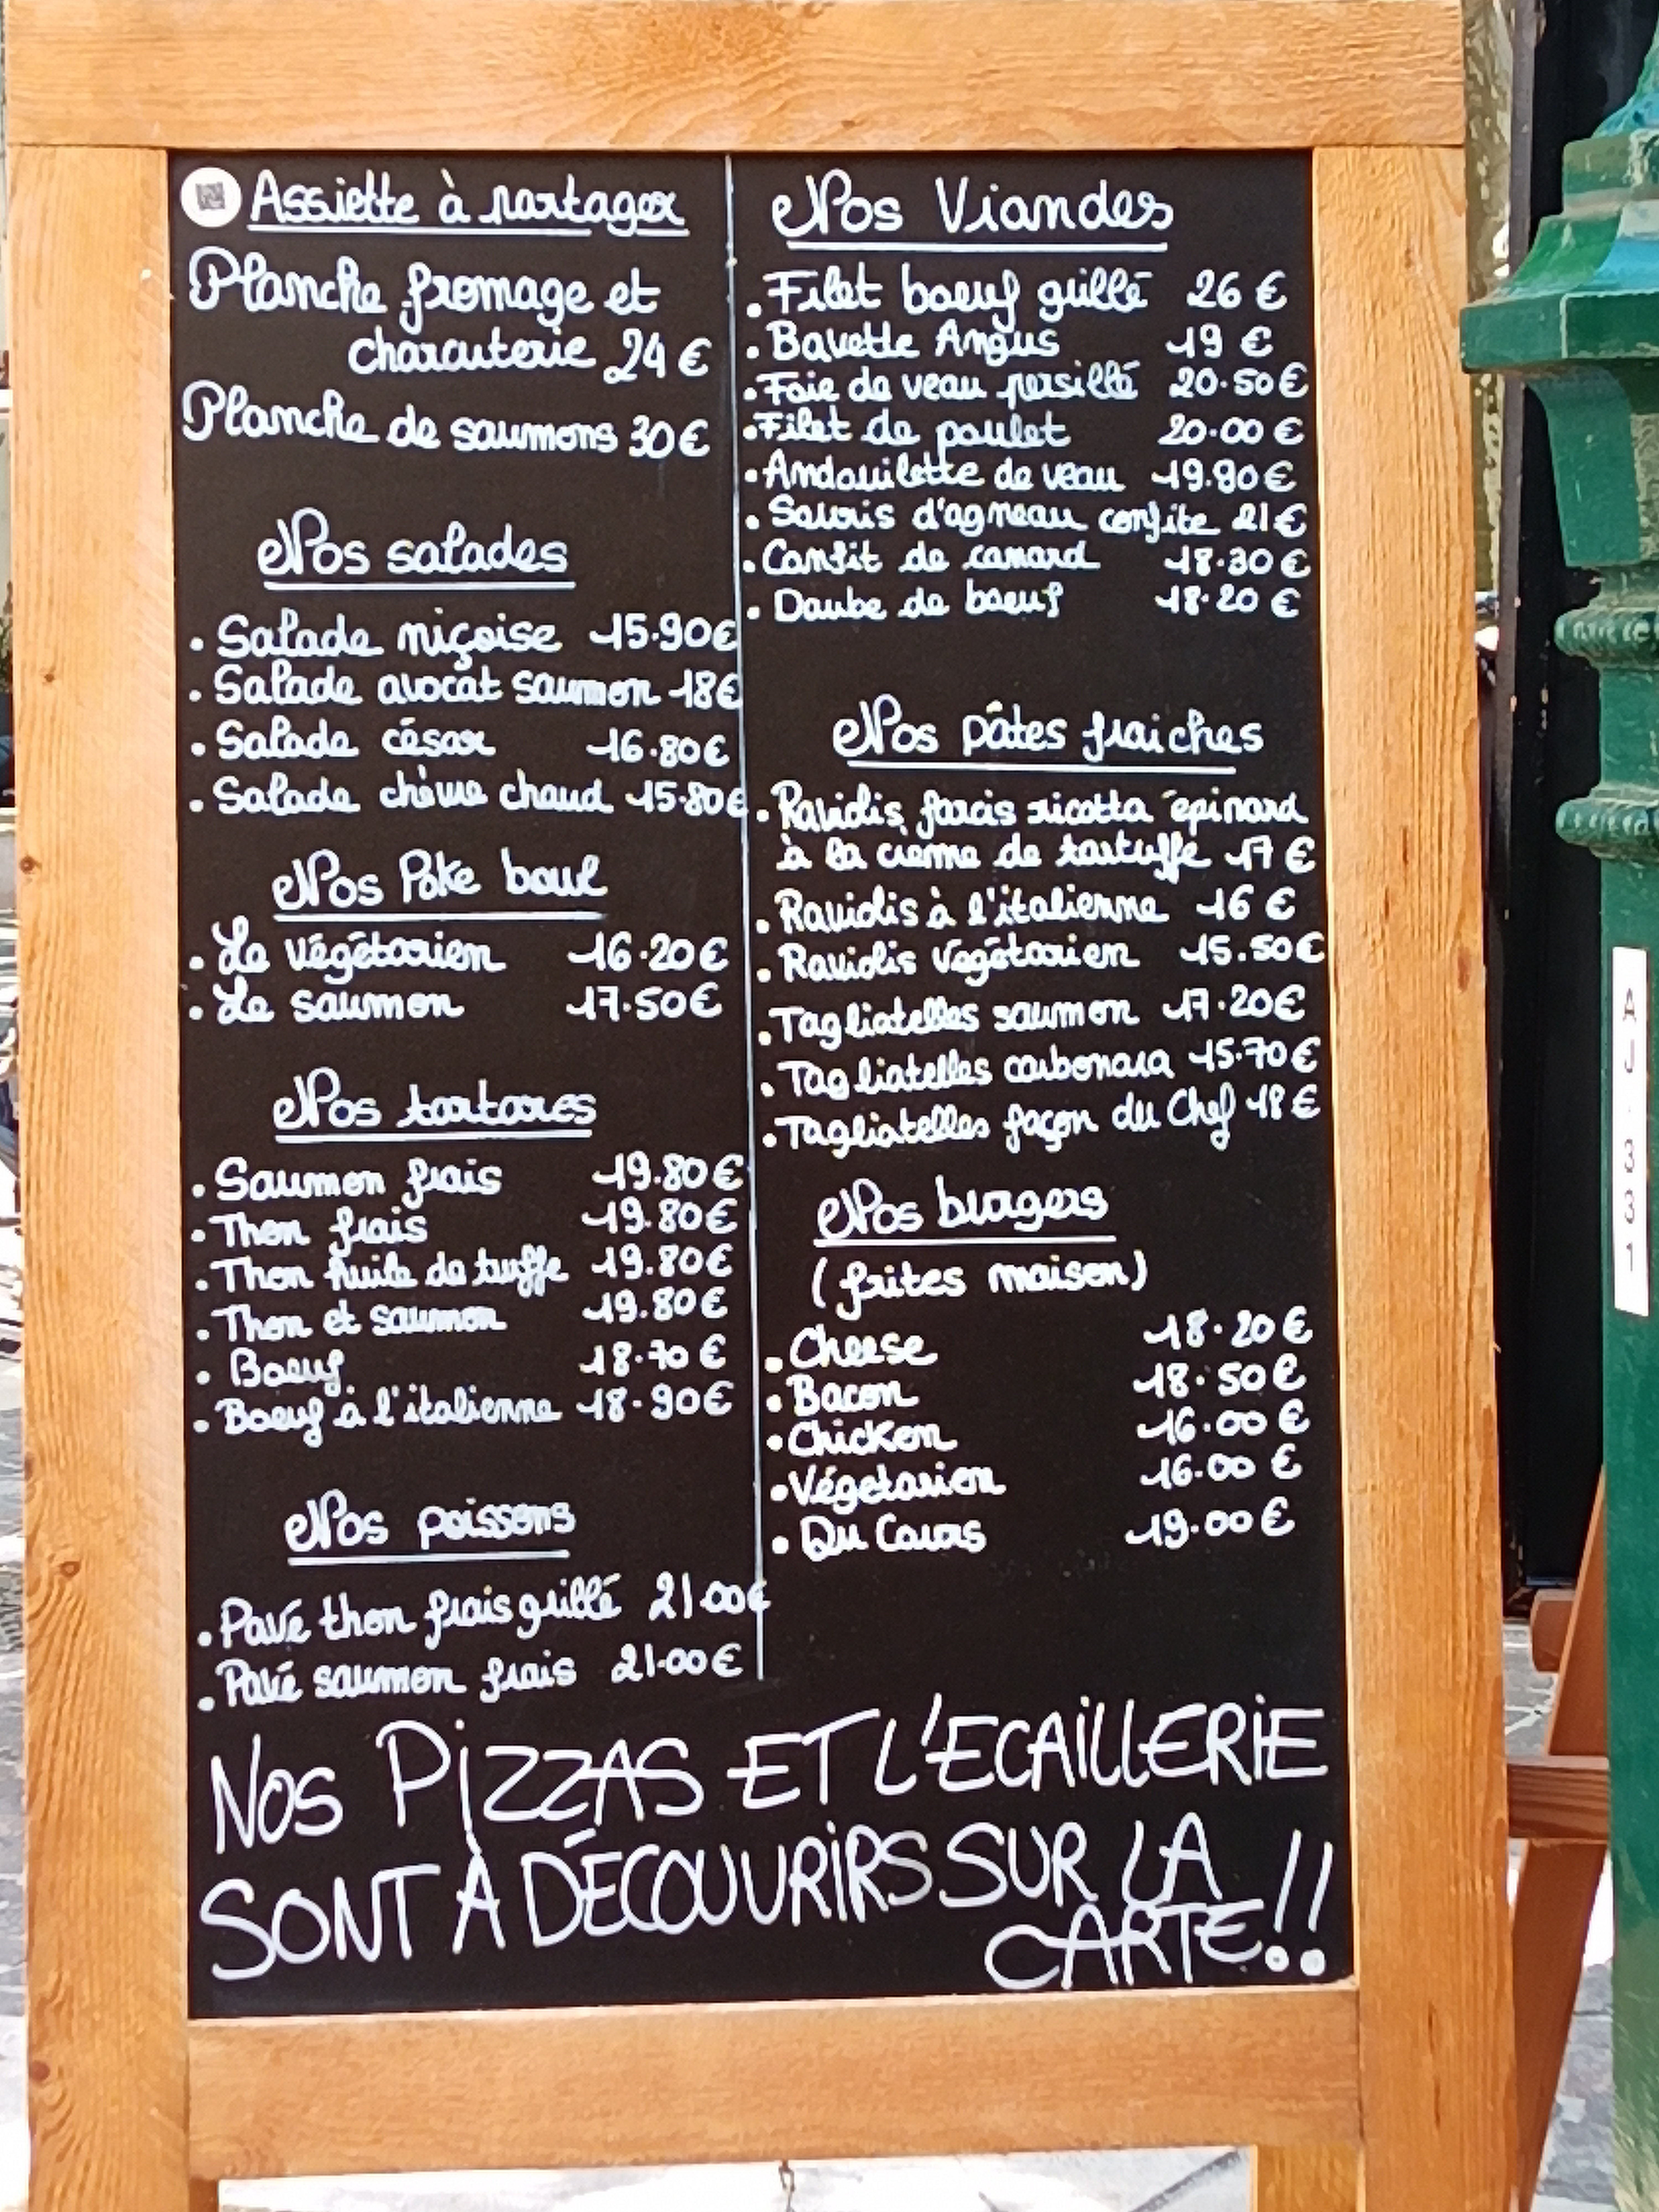 Assiette à partager
Planche fromage et
charcuterie 24 €
Planche de saumons 30 €
Nos salades
. Salade niçoise 15.90€
. Salade avocat saumon 18€
. Salade césar 16.80€
. Salade chèvre chaud 15.80€
Nos Poke bowl
. Le végétarien 16.20€
. Le saumon 17.50€
Nos tartares
. Saumon frais 19.80€
. Thon frais 19.80€
. Thon huile de truffe 19.80€
. Thon et saumon 19.80€
. Boeuf 18.70 €
. Boeuf à l'italienne 18.90€
Nos poissons
. Pavé thon frais grillé 21.00€
. Pavé saumon frais 21.00€
Nos Viandes
. Filet boeuf grillé 26 €
. Bavette Angus 19 €
. Foie de veau persillé 20.50€
. Filet de poulet 20.00 €
. Andouilette de veau 19.90€
. Souris d'agneau confite 21€
. Confit de canard 18.30€
. Daube de boeuf 18.20 €
Nos pâtes fraiches
. Raviolis farcis ricotta épinard
à la crème de tartuffe 17 €
. Raviolis à l'italienne 16 €
. Raviolis végétarien 15.50€
. Tagliatelles saumon 17.20€
. Tagliatelles carbonara 15.70€
. Tagliatelles façon du Chef 18€
Nos burgers
(frites maison)
. Cheese 18.20€
. Bacon 18.50€
. Chicken 16.00 €
. Végetarien 16.00 €
. Du Cours 19.00€
NOS PIZZAS ET L'ECAILLERIE
SONT À DÉCOUVRIRS SUR LA
CARTE!!
AJ 331